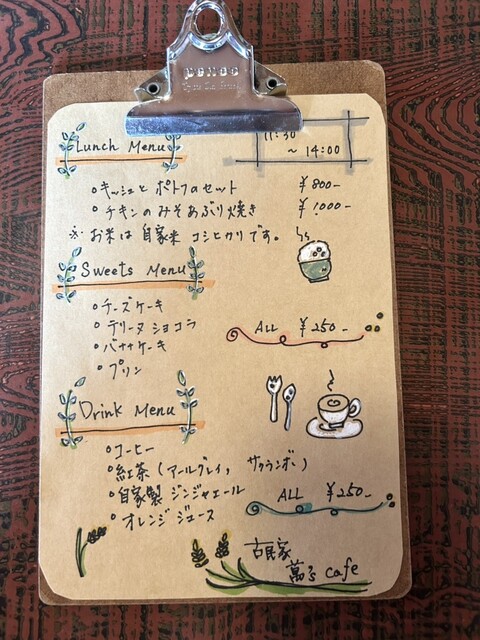 PENCO
Lunch Menu
11:30
~ 14:00
○ キッシュと ポトフのセット ¥800-
○ チキンの みそ あぶり焼き ¥1000-
※ お米は 自家米 コシヒカリです。
Sweets Menu
○ チーズケーキ
○ テリーヌ ショコラ
○ バナナケーキ
○ プリン
ALL ¥250-
Drink Menu
○ コーヒー
○ 紅茶 (アールグレイ, サクランボ)
○ 自家製 ジンジャエール
○ オレンジ ジュース
ALL ¥250-
古民家
萬's cafe